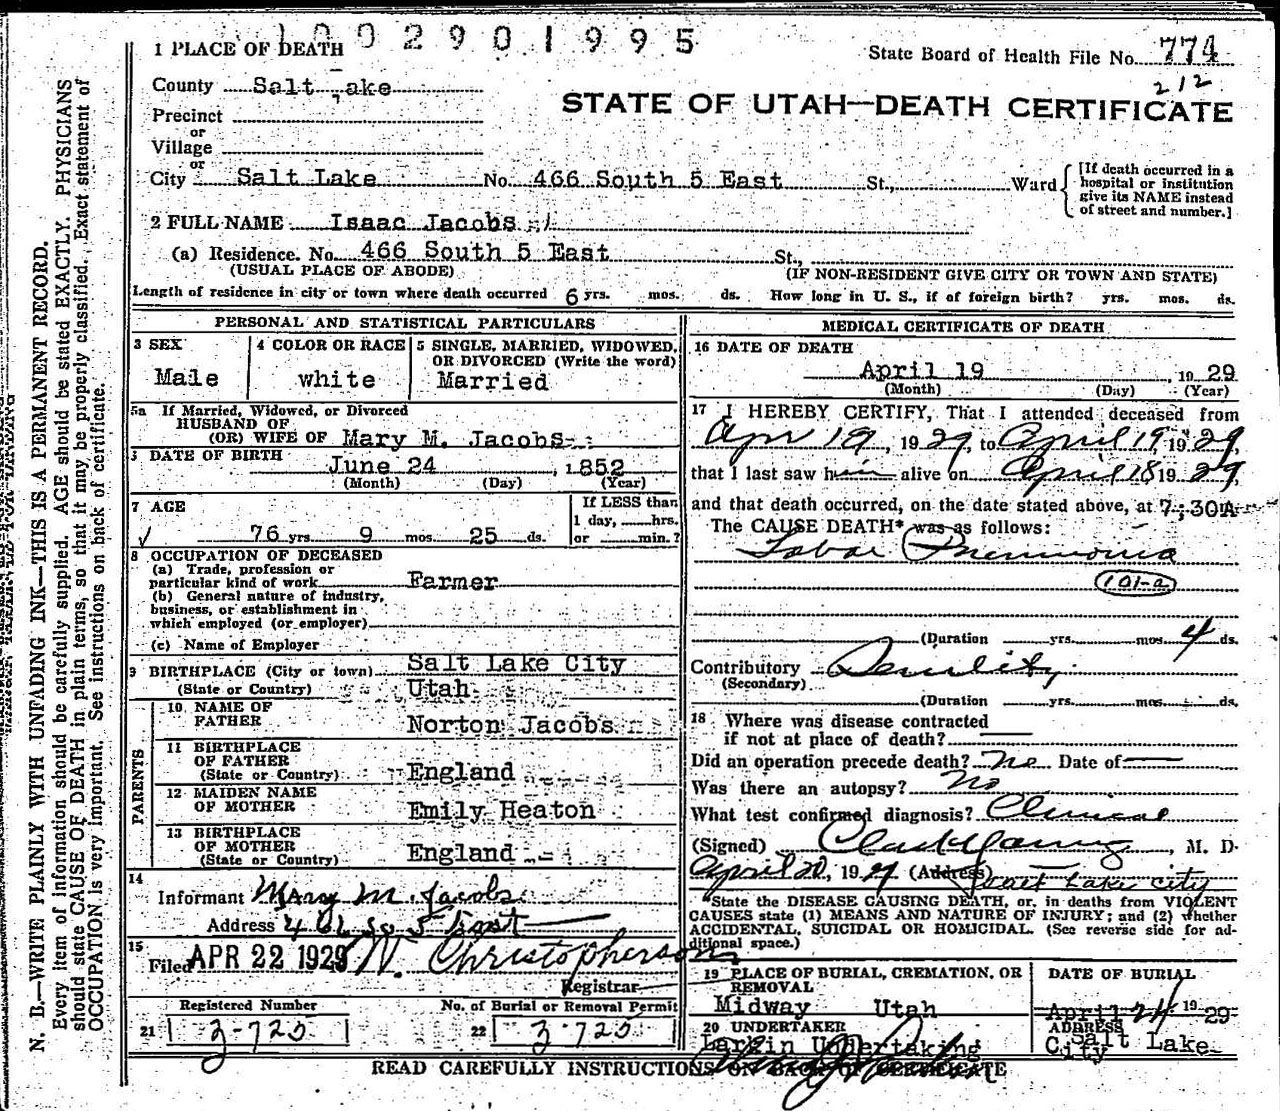 1002901995
1 PLACE OF DEATH
State Board of Health File No. 774
212
County Salt Lake
STATE OF UTAH—DEATH CERTIFICATE
Precinct
or
Village
or
City Salt Lake No. 466 South 5 East St., Ward
[If death occurred in a
hospital or institution
give its NAME instead
of street and number.]
2 FULL NAME Isaac Jacobs
(a) Residence. No. 466 South 5 East St.,
(USUAL PLACE OF ABODE) (IF NON-RESIDENT GIVE CITY OR TOWN AND STATE)
Length of residence in city or town where death occurred 6 yrs. mos. ds. How long in U. S., if of foreign birth? yrs. mos. ds.
PERSONAL AND STATISTICAL PARTICULARS
3 SEX
Male
4 COLOR OR RACE
white
5 SINGLE, MARRIED, WIDOWED,
OR DIVORCED (Write the word)
Married
5a If Married, Widowed, or Divorced
HUSBAND OF
(OR) WIFE OF Mary M. Jacobs
DATE OF BIRTH
June 24, 1852
(Month) (Day) (Year)
7 AGE
76 yrs. 9 mos. 25 ds.
If LESS than
1 day, hrs.
or min.?
8 OCCUPATION OF DECEASED
(a) Trade, profession or
particular kind of work Farmer
(b) General nature of industry,
business, or establishment in
which employed (or employer)
(c) Name of Employer
9 BIRTHPLACE (City or town) Salt Lake City
(State or Country) Utah
PARENTS
10 NAME OF
FATHER Norton Jacobs
11 BIRTHPLACE
OF FATHER
(State or Country) England
12 MAIDEN NAME
OF MOTHER Emily Heaton
13 BIRTHPLACE
OF MOTHER
(State or Country) England
14
Informant Mary M. Jacobs
Address So 5 East
15
Filed APR 22 1929 N. Christopherson
Registrar
Registered Number
21 3-725
No. of Burial or Removal Permit
22 3-725
MEDICAL CERTIFICATE OF DEATH
16 DATE OF DEATH
April 19, 1929
(Month) (Day) (Year)
17 I HEREBY CERTIFY, That I attended deceased from
Apr 19, 1929, to April 19, 1929,
that I last saw him alive on April 18 1929,
and that death occurred, on the date stated above, at 7:30A
The CAUSE DEATH* was as follows:
Lobar Pneumonia
101-a
(Duration yrs. mos. 4 ds.
Contributory Senility
(Secondary)
(Duration yrs. mos. ds.
18 Where was disease contracted
if not at place of death?
Did an operation precede death? No Date of
Was there an autopsy? No
What test confirmed diagnosis? Clinical
(Signed) , M. D.
April 20, 1929 (Address) Salt Lake City
*State the DISEASE CAUSING DEATH, or, in deaths from VIOLENT
CAUSES state (1) MEANS AND NATURE OF INJURY; and (2) whether
ACCIDENTAL, SUICIDAL OR HOMICIDAL. (See reverse side for ad-
ditional space.)
19 PLACE OF BURIAL, CREMATION, OR
REMOVAL
Midway Utah
DATE OF BURIAL
April 21 1929
20 UNDERTAKER
Larkin Undertaking
ADDRESS
Salt Lake
City
READ CAREFULLY INSTRUCTIONS ON BACK OF CERTIFICATE
N. B.—WRITE PLAINLY WITH UNFADING INK—THIS IS A PERMANENT RECORD.
Every item of information should be carefully supplied. AGE should be stated EXACTLY. PHYSICIANS
should state CAUSE OF DEATH in plain terms, so that it may be properly classified. Exact statement of
OCCUPATION is very important. See instructions on back of certificate.